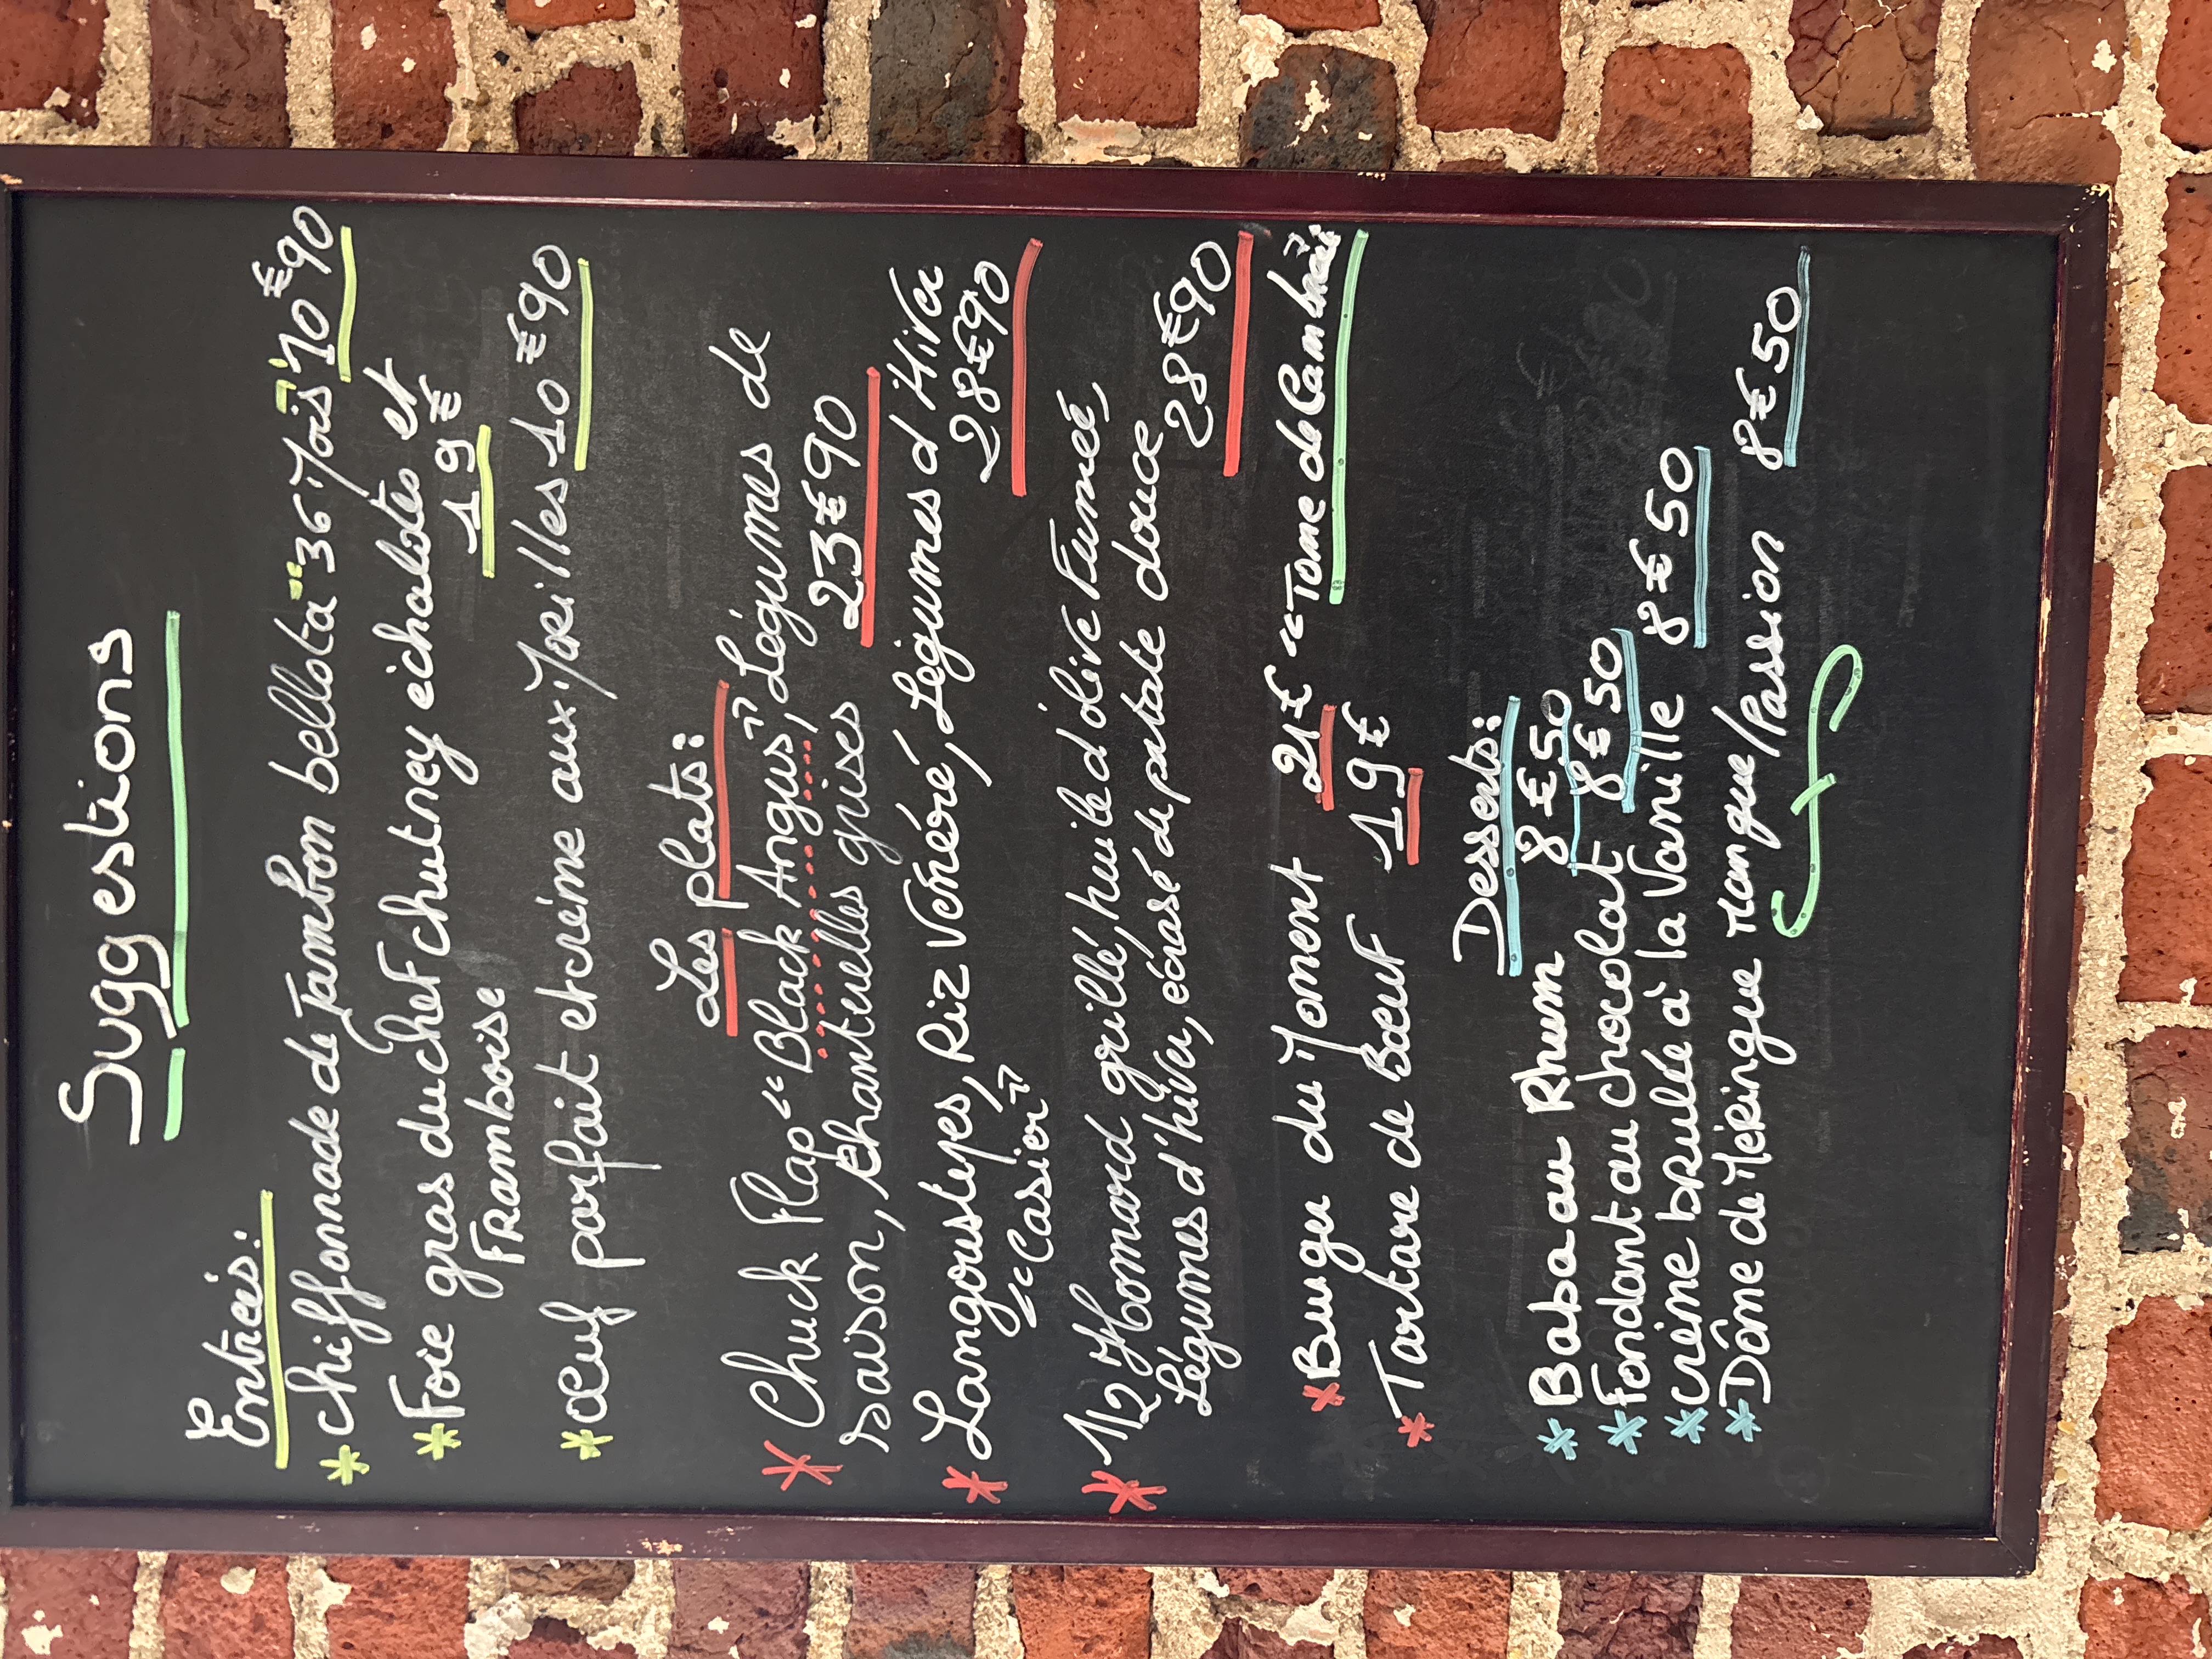 Suggestions
Entrées:
* Chiffonnade de Jambon bellota "36 Mois" 10€90
* Foie gras du chef chutney échalotes et
Framboise 19€
* œuf parfait et crème aux Morilles 10€90
Les plats:
* Chuck Flap "Black Angus", Légumes de
saison, Chanterelles grises 23€90
* Langoustes, Riz Vénéré, Légumes d'Hiver
"Casier" 28€90
* 1/2 Homard grillé, huile d'olive Fumée,
Légumes d'hiver, écrasé de patate douce 28€90
* Burger du Moment 21€ "Tome de Cambrai"
* Tartare de Bœuf 19€
Desserts:
* Baba au Rhum 8€50
* Fondant au chocolat 8€50
* crème brulée à la Vanille 8€50
* Dôme de Meringue mangue/Passion 8€50